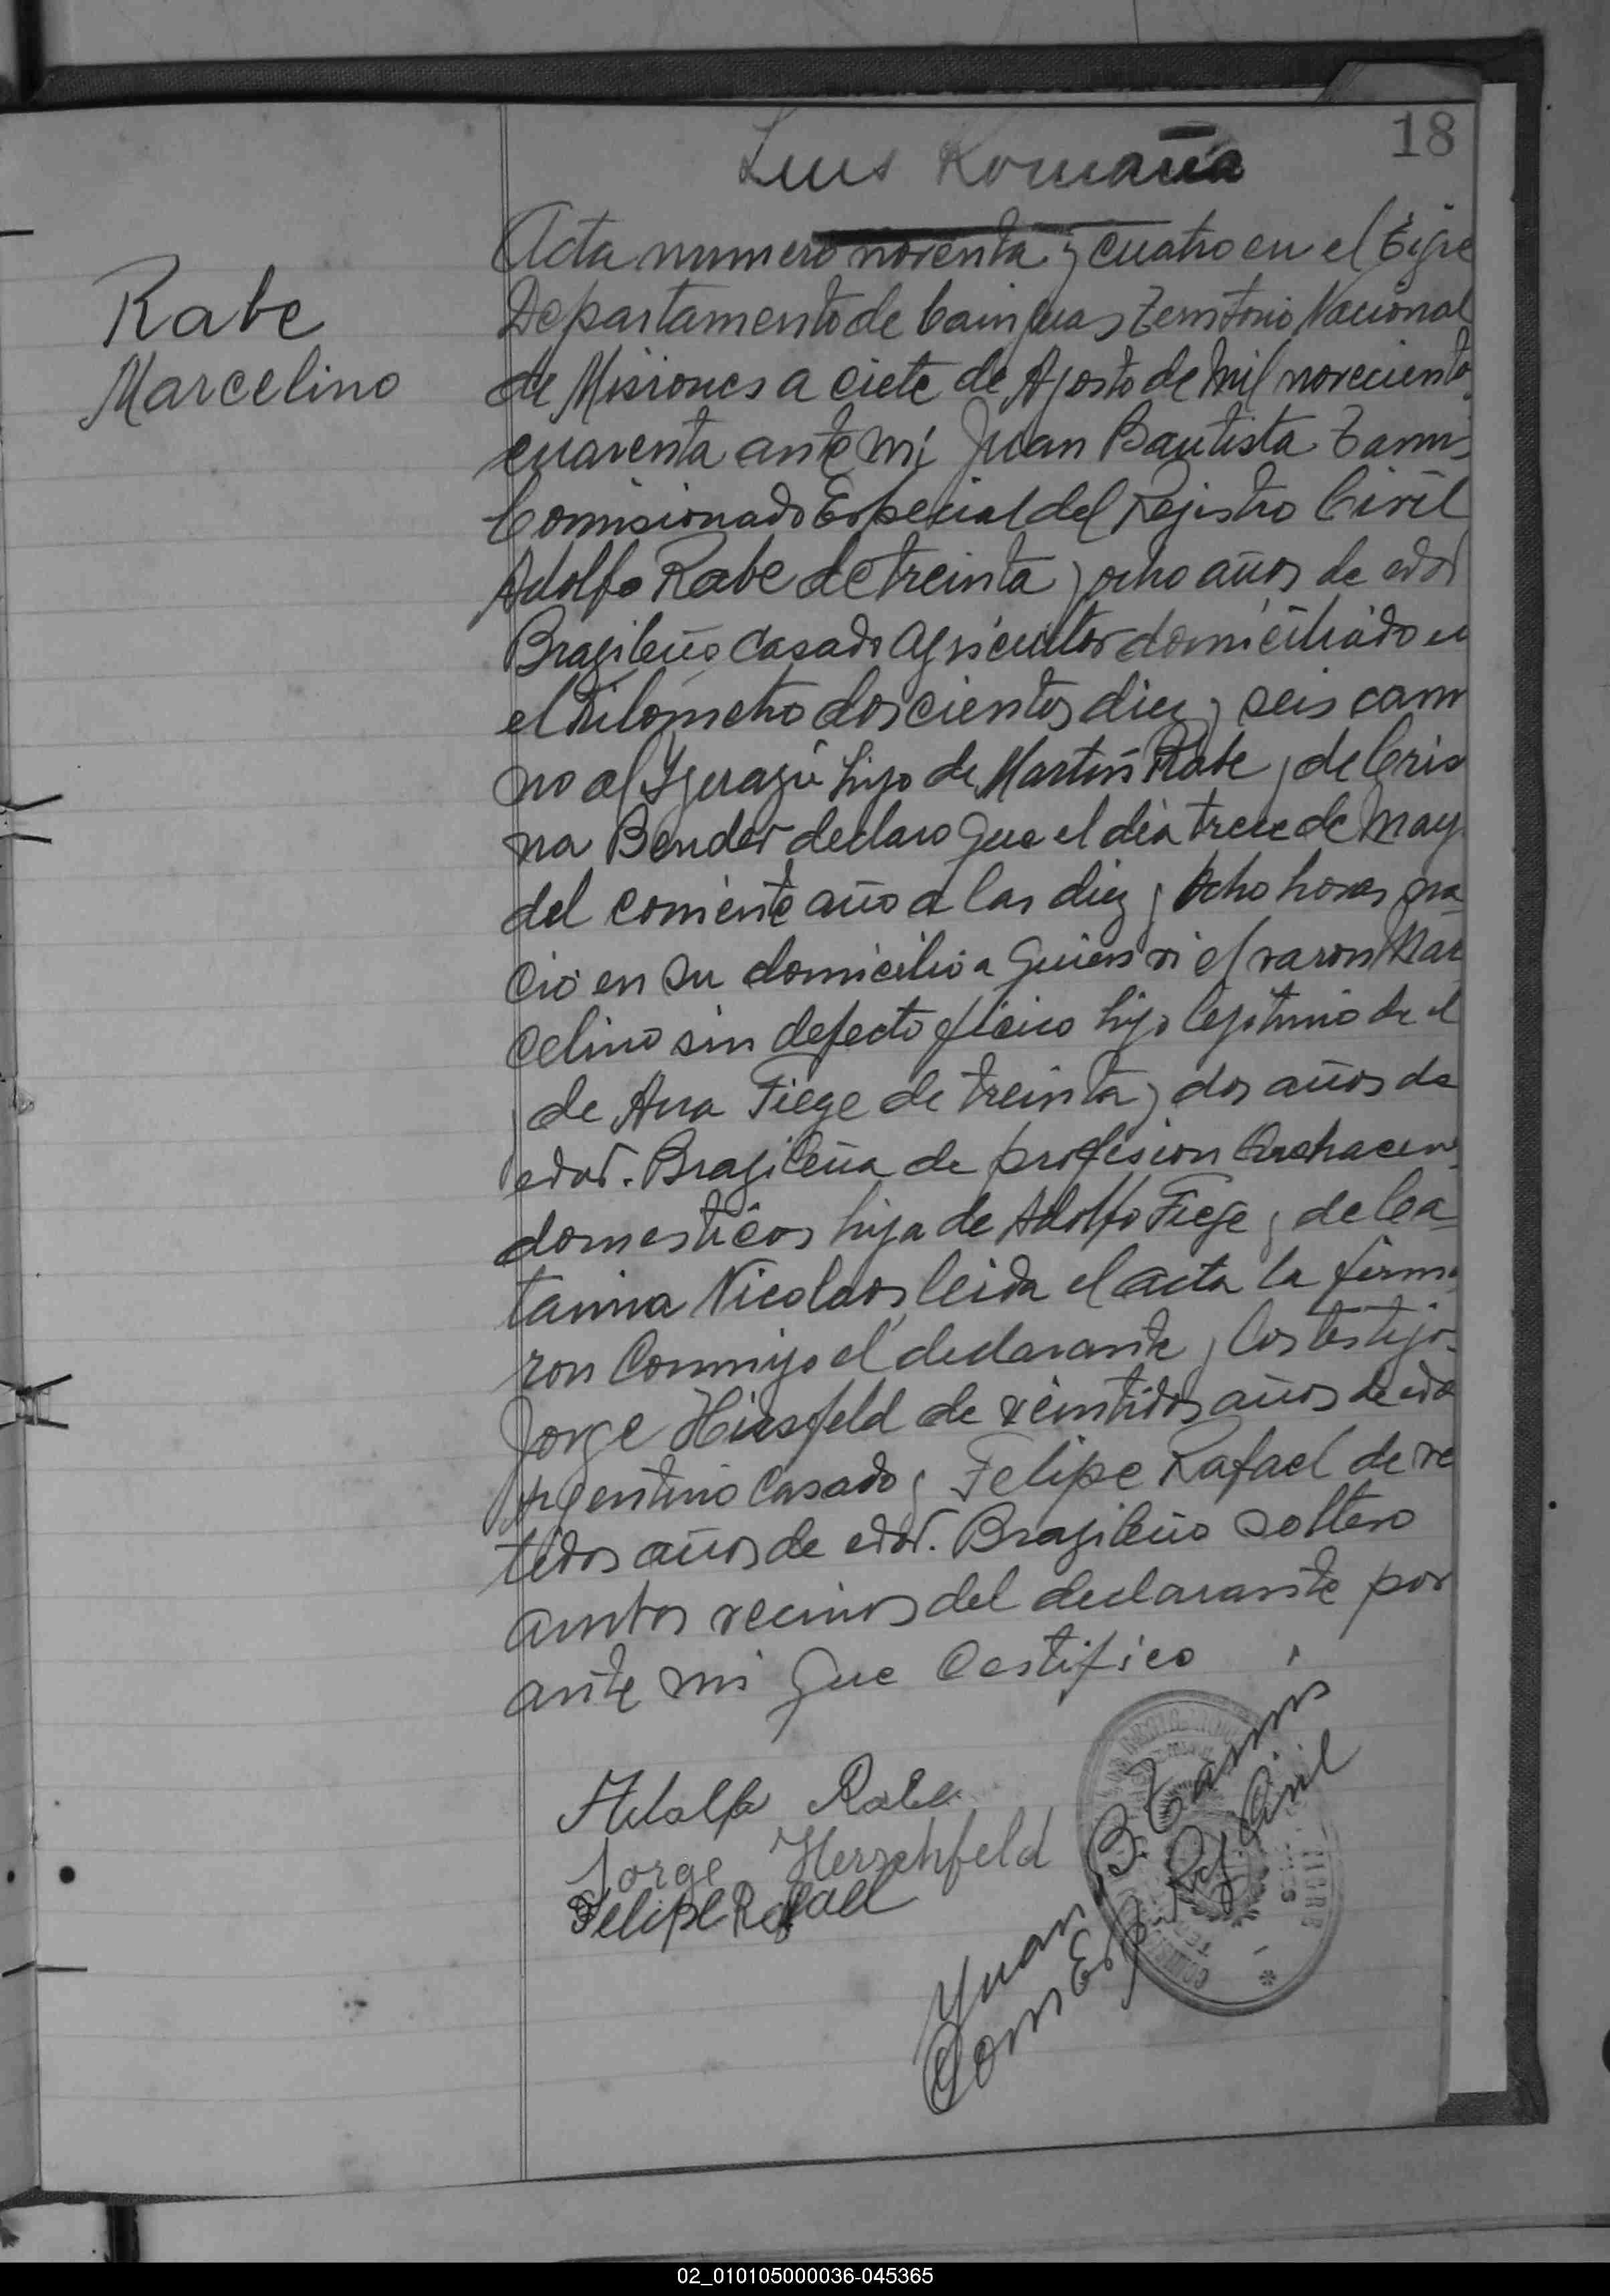 18
Luis Romaña
Rabe
Marcelino
Acta numero noventa y cuatro en el Tigre
Departamento de Cainguas Territorio Nacional
de Misiones a ciete de Agosto de mil noveciento
cuarenta ante mi Juan Bautista
Comisionado Especial del Rejistro Civil
Adolfo Rabe de treinta y ocho años de edad
Brazileño casado agricultor domiciliado en
el Kilometro doscientos diez y seis cami
no al hijo de Martin Rabe y de Cris
na Bender declaro que el dia trece de May
del corriente año a las diez y ocho horas na
cio en su domicilio a quien vi el varon Mar
celino sin defecto ficico hijo lejitimo de el
y de Ana Fiege de treinta y dos años de
edad. Brazileña de profesion Quehacer
domesticos hija de Adolfo Fiege y de Ca
tarina Nicolaos leida el acta la firma
ron conmigo el declarante y los testijo
Jorge Hirsfeld de veintidos años de eda
Argentino casado y Felipe Rafael de ve
tidos años de edad. Brazileño soltero
ambos vecinos del declarante por
ante mi que Certifico
Adolfo Rabe
Jorge Herschfeld
Felipe Rafael
Juan B.
Com Esp Rej Civil
TIGRE
02_010105000036-045365